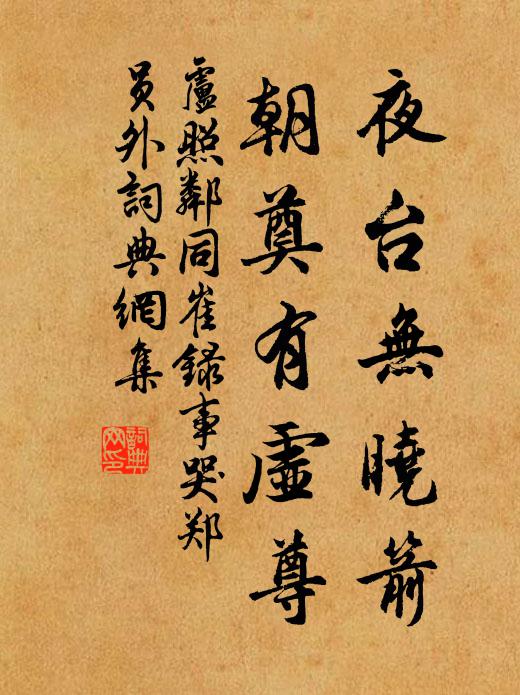 夜台無曉箭
朝奠有虛尊
盧照鄰同崔錄事哭郑
員外詞典網集
詞典网印